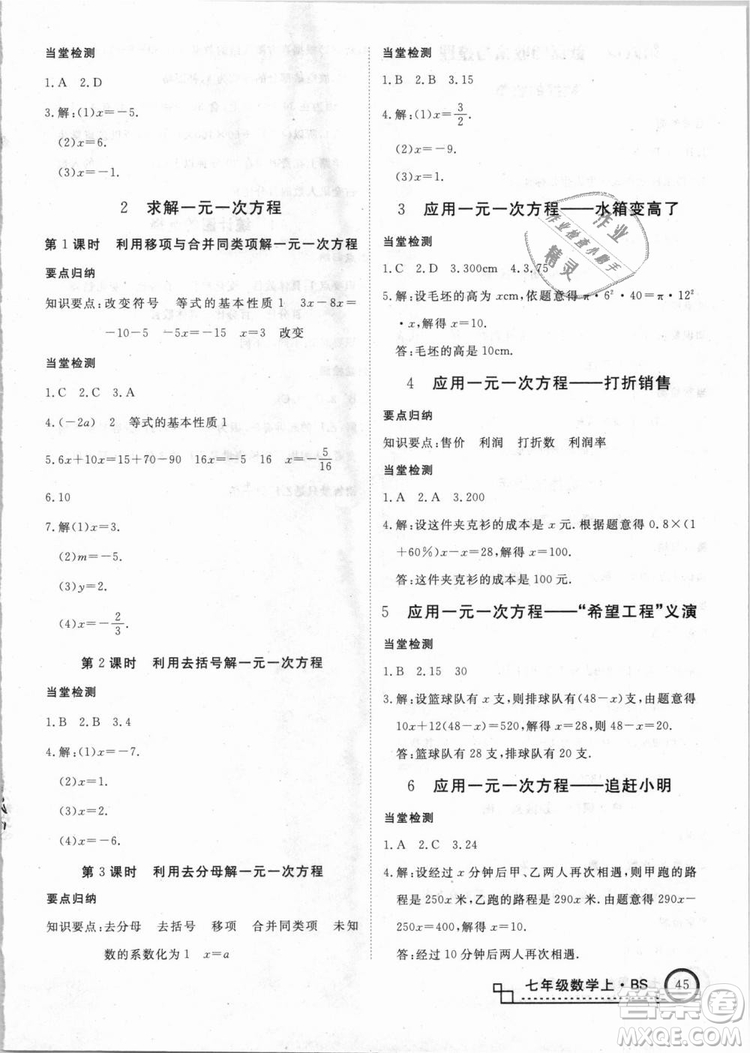 当堂检测
1.A 2.D
3.解:(1)x=-5.
(2)x=6.
(3)x=-1.
2 求解一元一次方程
第1课时 利用移项与合并同类项解一元一次方程
要点归纳
知识要点:改变符号 等式的基本性质1 3x-8x=
-10-5 -5x=-15 x=3 改变
当堂检测
1.C 2.C 3.A
4.(-2a) 2 等式的基本性质1
5.6x+10x=15+70-90 16x=-5 16 x=-5/16
6.10
7.解(1)x=3.
(2)m=-5.
(3)y=2.
(4)x=-2/3.
第2课时 利用去括号解一元一次方程
当堂检测
1.B 2.B 3.4
4.解:(1)x=-7.
(2)x=1.
(3)x=4.
(4)x=-6.
第3课时 利用去分母解一元一次方程
要点归纳
知识要点:去分母 去括号 移项 合并同类项 未知
数的系数化为1 x=a
当堂检测
1.B 2.B 3.15
4.解:(1)x=3/2.
(2)x=-9.
(3)x=1.
3 应用一元一次方程——水箱变高了
当堂检测
1.C 2.D 3.300cm 4.3.75
5.解:设毛坯的高为xcm,依题意得π·6²·40=π·12²
·x,解得x=10.
答:毛坯的高是10cm.
4 应用一元一次方程——打折销售
要点归纳
知识要点:售价 利润 打折数 利润率
当堂检测
1.A 2.A 3.200
4.解:设这件夹克衫的成本是x元.根据题意得0.8×(1
+60%)x-x=28,解得x=100.
答:这件夹克衫的成本是100元.
5 应用一元一次方程——“希望工程”义演
当堂检测
1.B 2.15 30
3.解:设篮球队有x支,则排球队有(48-x)支,由题意得
10x+12(48-x)=520,解得x=28.48-x=20.
答:篮球队有28支,排球队有20支.
6 应用一元一次方程——追赶小明
当堂检测
1.A 2.C 3.24
4.解:设经过x分钟后甲、乙两人再次相遇,则甲跑的路程
是250x米,乙跑的路程是290x米.根据题意得
250x+400=290x,解得x=10.
答:经过10分钟后两人再次相遇.
七年级数学上·BS 45
作业
作业检查小助手
精灵
答案圈
MXQE.COM